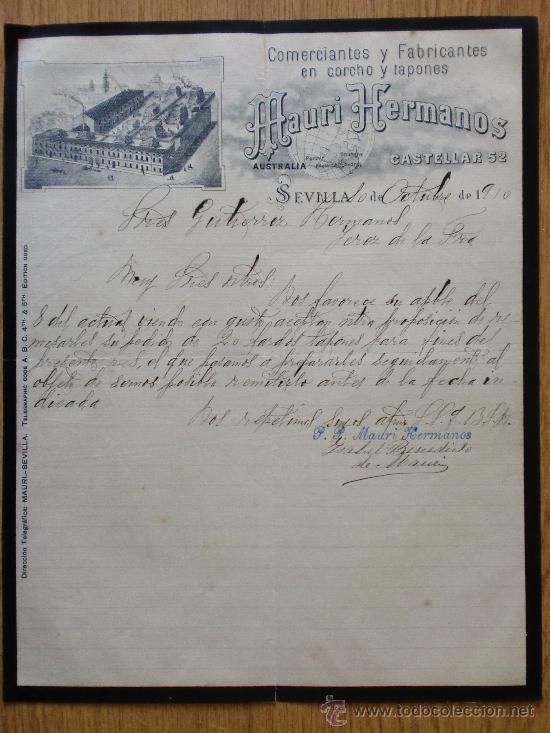 Comerciantes y Fabricantes
en corcho y tapones
Mauri Hermanos
AUSTRALIA
CASTELLAR 52
SEVILLA 10 de Octubre de 1910
Sres Gutierrez Hermanos
Jerez de la Fra
Muy Sres ntros:
Nos favorece su atble del
8 del actual viendo con gusto aceptan ntra proposición de re
mesarles su pedido de fardos tapones para fines del
presente mes, el que pasamos a prepararles seguidamente al
objeto de sernos posible remitirlo antes de la fecha in
dicada
Nos repetimos suyos afmos S.S.q.B.S.M.
P. P. Mauri Hermanos
Isabel Benedicto
de Mauri
Dirección Telegráfica: MAURI-SEVILLA. TELEGRAPHIC CODE A. B. C. 4TH. & 5TH. EDITION USED.
todocoleccion.net